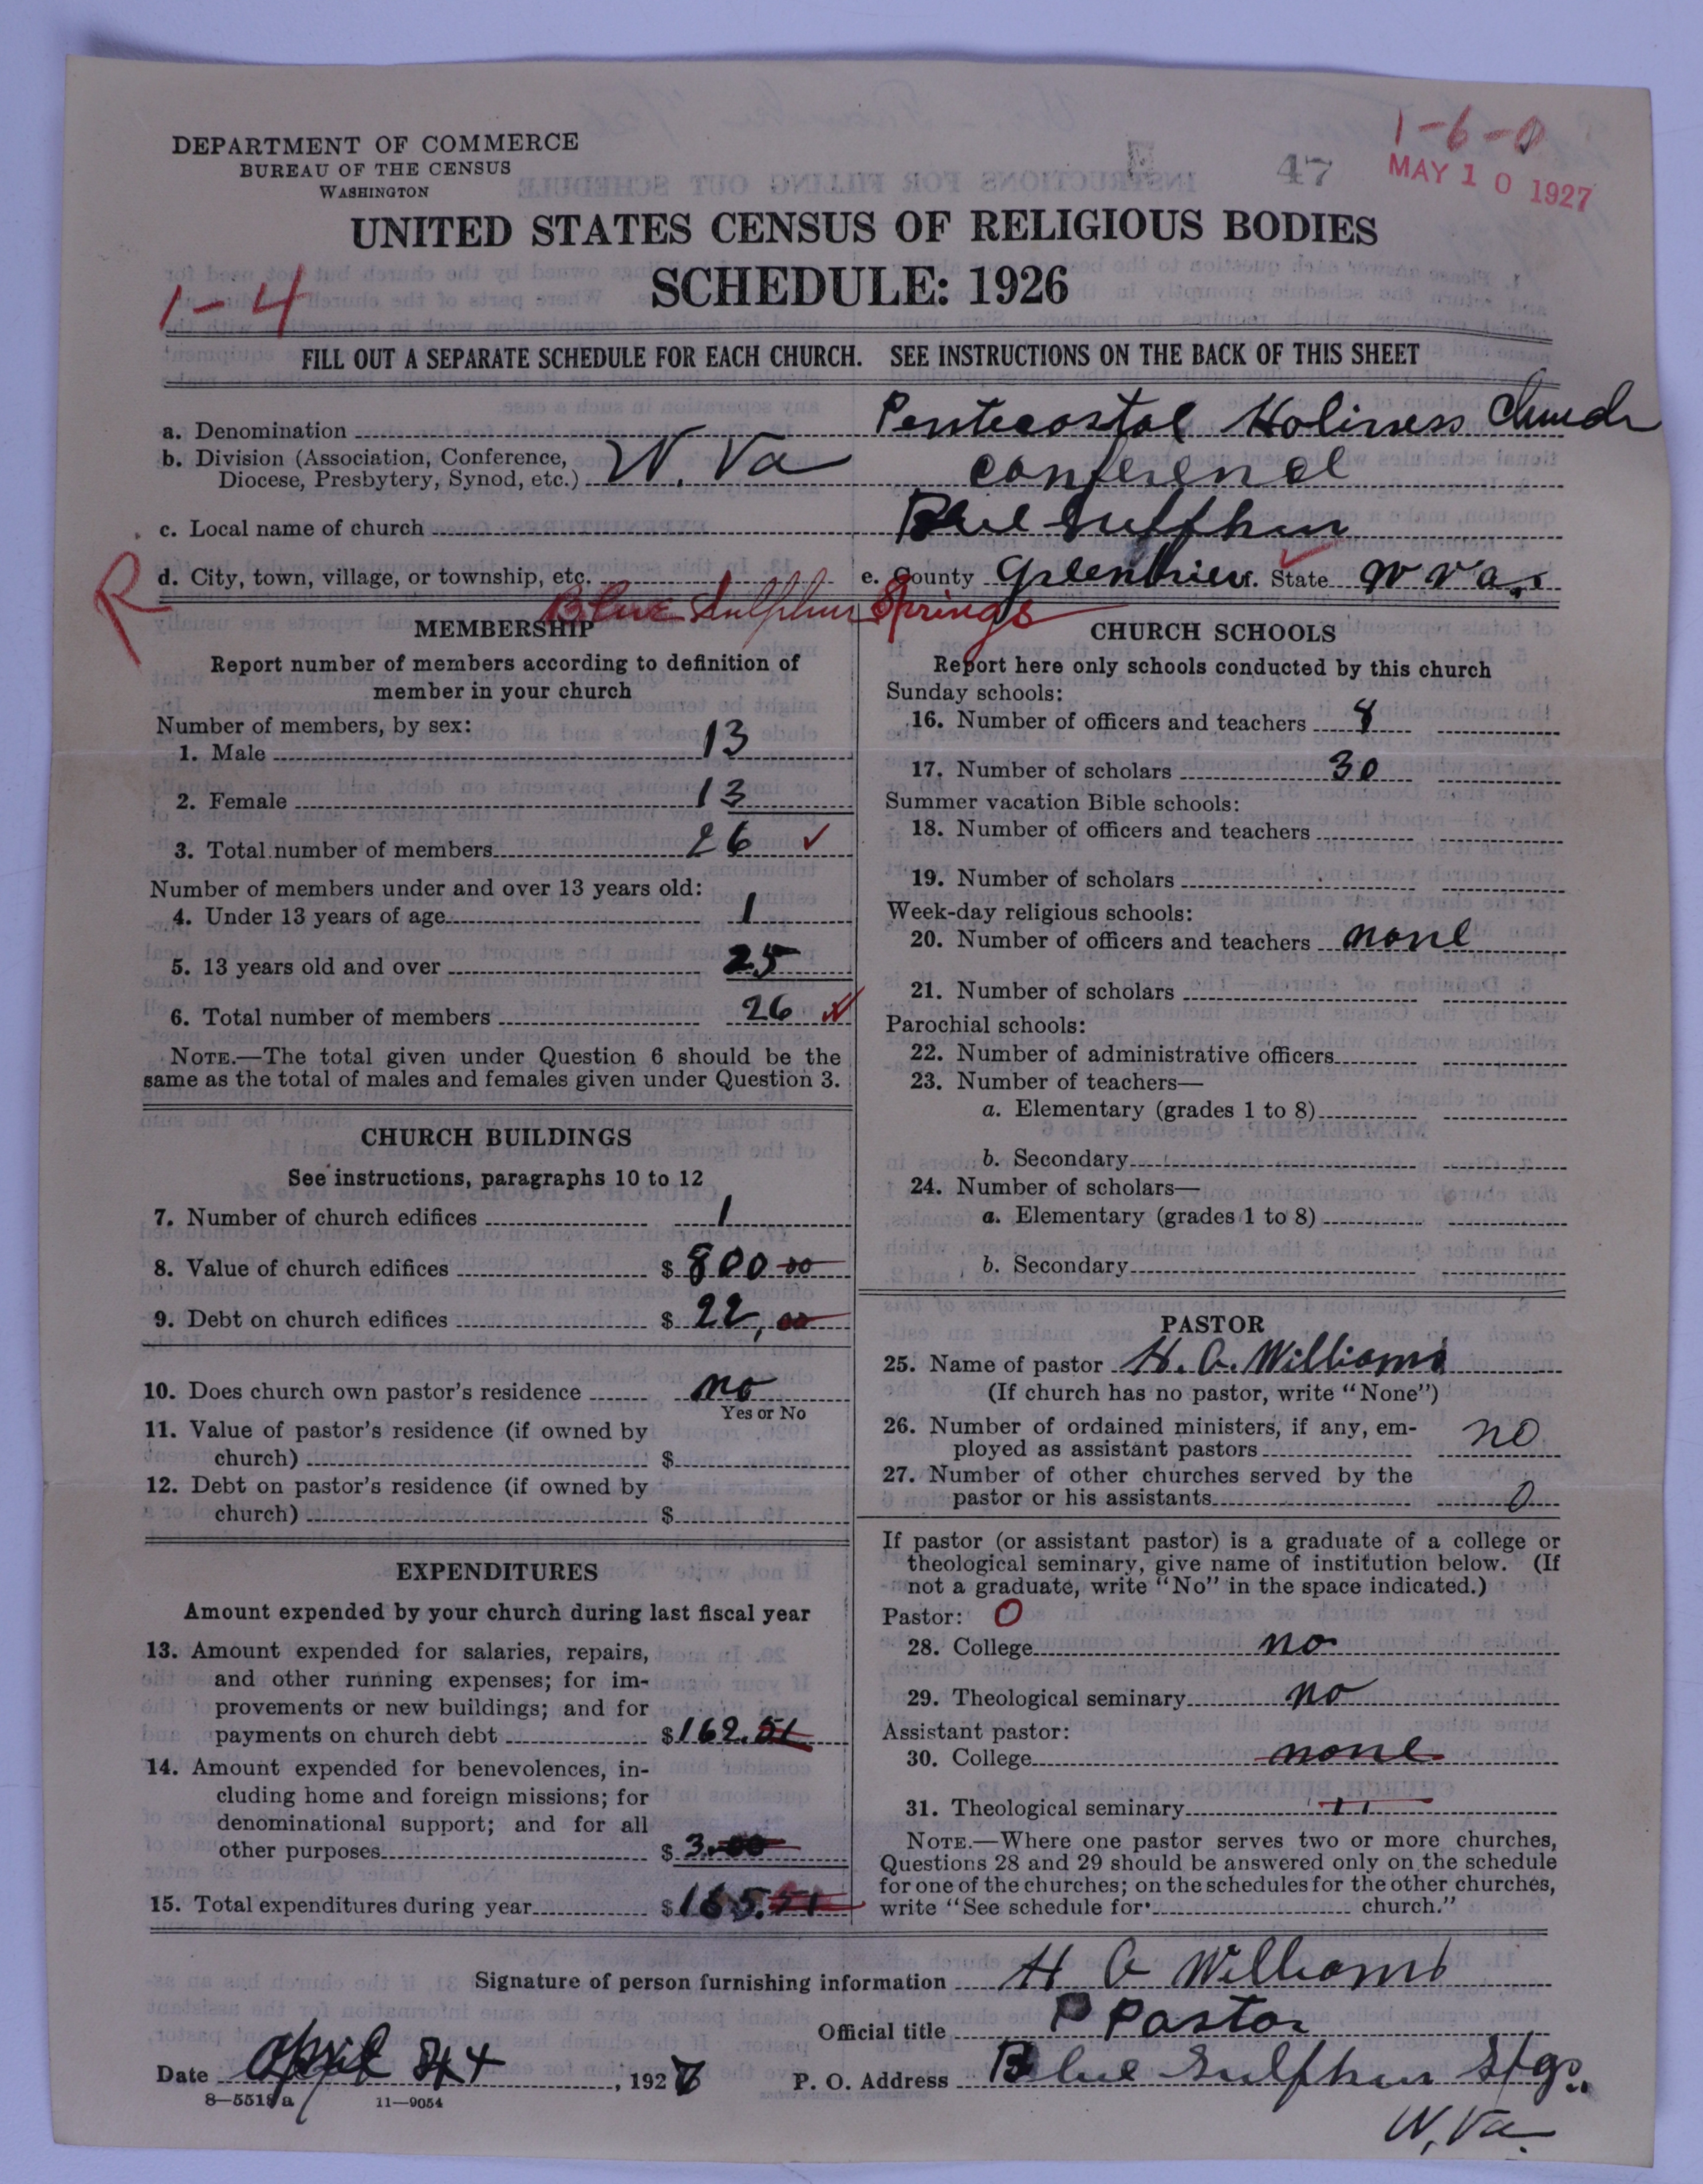 1-6-0
47
MAY 10 1927
DEPARTMENT OF COMMERCE
BUREAU OF THE CENSUS
WASHINGTON
UNITED STATES CENSUS OF RELIGIOUS BODIES
SCHEDULE: 1926
1-4
FILL OUT A SEPARATE SCHEDULE FOR EACH CHURCH. SEE INSTRUCTIONS ON THE BACK OF THIS SHEET
a. Denomination Pentecostal Holiness Church
b. Division (Association, Conference, Diocese, Presbytery, Synod, etc.) W. Va conference
c. Local name of church Blue Sulphur
R
d. City, town, village, or township, etc. Blue Sulphur Springs e. County Greenbrier. State W Va.
MEMBERSHIP
Report number of members according to definition of
member in your church
Number of members, by sex:
1. Male 13
2. Female 13
3. Total number of members 26 ✓
Number of members under and over 13 years old:
4. Under 13 years of age 1
5. 13 years old and over 25
6. Total number of members 26 ✓
NOTE.—The total given under Question 6 should be the
same as the total of males and females given under Question 3.
CHURCH BUILDINGS
See instructions, paragraphs 10 to 12
7. Number of church edifices 1
8. Value of church edifices $ 800 00
9. Debt on church edifices $ 22, 00
10. Does church own pastor's residence no
Yes or No
11. Value of pastor's residence (if owned by
church) $
12. Debt on pastor's residence (if owned by
church) $
EXPENDITURES
Amount expended by your church during last fiscal year
13. Amount expended for salaries, repairs,
and other running expenses; for im-
provements or new buildings; and for
payments on church debt $ 162.51
14. Amount expended for benevolences, in-
cluding home and foreign missions; for
denominational support; and for all
other purposes $ 3.00
15. Total expenditures during year $ 165.51
CHURCH SCHOOLS
Report here only schools conducted by this church
Sunday schools:
16. Number of officers and teachers 8
17. Number of scholars 30
Summer vacation Bible schools:
18. Number of officers and teachers
19. Number of scholars
Week-day religious schools:
20. Number of officers and teachers none
21. Number of scholars
Parochial schools:
22. Number of administrative officers
23. Number of teachers—
a. Elementary (grades 1 to 8)
b. Secondary
24. Number of scholars—
a. Elementary (grades 1 to 8)
b. Secondary
PASTOR
25. Name of pastor H. A. Williams
(If church has no pastor, write "None")
26. Number of ordained ministers, if any, em-
ployed as assistant pastors no
27. Number of other churches served by the
pastor or his assistants 0
If pastor (or assistant pastor) is a graduate of a college or
theological seminary, give name of institution below. (If
not a graduate, write "No" in the space indicated.)
Pastor: O
28. College no
29. Theological seminary no
Assistant pastor:
30. College none
31. Theological seminary "
NOTE.—Where one pastor serves two or more churches,
Questions 28 and 29 should be answered only on the schedule
for one of the churches; on the schedules for the other churches,
write "See schedule for church."
Signature of person furnishing information H A Williams
Official title P Pastor
Date April 24, 1927
P. O. Address Blue Sulphur Spgs.
W, Va.
8—5518 a 11—9054